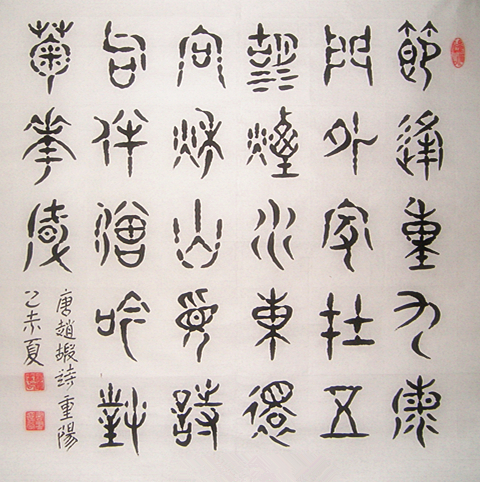 節逢重九海
門外家在五
湖煙水東還
向秋山覓詩
句伴僧吟對
菊華風
唐趙嘏詩重陽
乙未夏